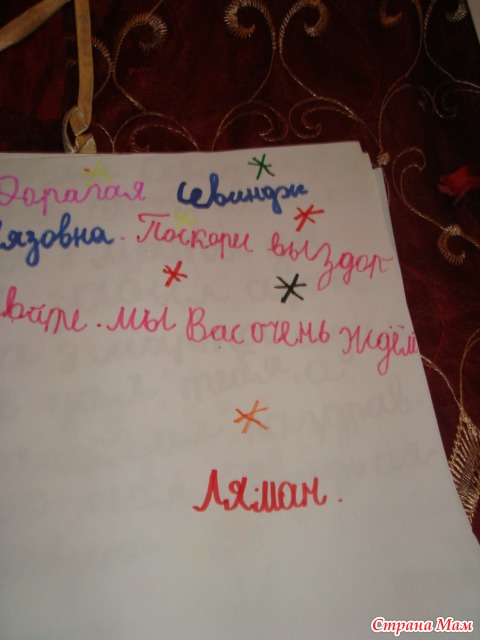 Дорагая Севиндж
язовна. Поскори выздор-
вайте. мы Вас очень ждём
Ляман.
Страна Мам